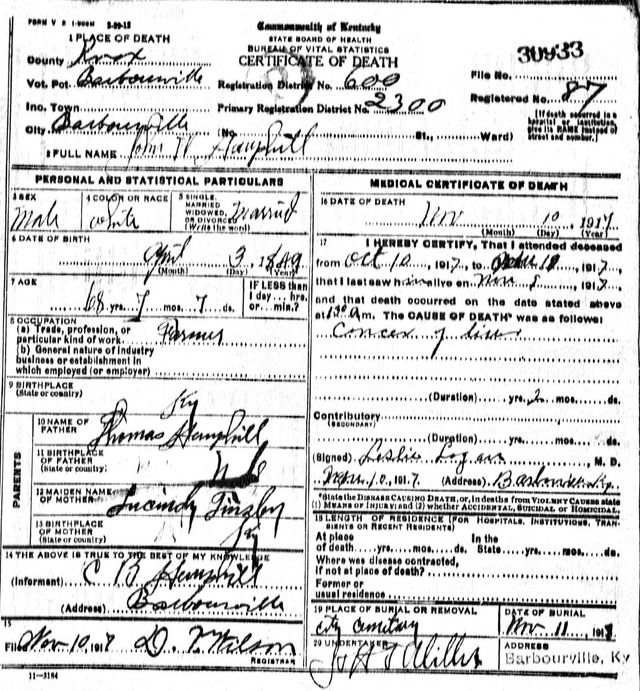 FORM V S 1-
Commonwealth of Kentucky
STATE BOARD OF HEALTH
BUREAU OF VITAL STATISTICS
CERTIFICATE OF DEATH
1 PLACE OF DEATH
County Knox
Vot. Pct. Barbourville
Inc. Town
City Barbourville
Registration District No. 600
Primary Registration District No. 2300
(No. St., Ward)
30933
File No.
Registered No. 87
[If death occurred in a hospital or institution, give its NAME instead of street and number.]
2 FULL NAME John W Hemphill
PERSONAL AND STATISTICAL PARTICULARS
3 SEX
Male
4 COLOR OR RACE
White
5 SINGLE, MARRIED WIDOWED, OR DIVORCED (Write the word)
Married
6 DATE OF BIRTH
April 3, 1849
(Month) (Day) (Year)
7 AGE
68 yrs. 7 mos. 7 ds.
IF LESS than 1 day... hrs. or... min.?
8 OCCUPATION
(a) Trade, profession, or particular kind of work. Farmer
(b) General nature of industry business or establishment in which employed (or employer)
9 BIRTHPLACE
(State or country)
Ky
PARENTS
10 NAME OF FATHER
Thomas Hemphill
11 BIRTHPLACE OF FATHER
(State or country)
N C
12 MAIDEN NAME OF MOTHER
Lucindy Tinsley
13 BIRTHPLACE OF MOTHER
(State or country)
Ky
14 THE ABOVE IS TRUE TO THE BEST OF MY KNOWLEDGE
(Informant) C B Hemphill
(Address) Barbourville
15
Filed Nov 10, 1917 D. Wilson
REGISTRAR
11-3184
MEDICAL CERTIFICATE OF DEATH
16 DATE OF DEATH
Nov 10, 1917
(Month) (Day) (Year)
17 I HEREBY CERTIFY, That I attended deceased
from Oct 10, 1917, to 10, 1917,
that I last saw him alive on Nov 8, 1917,
and that death occurred on the date stated above
at m. The CAUSE OF DEATH* was as follows:
Concer of liver
(Duration) yrs. 2 mos. ds.
Contributory
(SECONDARY)
(Duration) yrs. mos. ds.
(Signed) Leslie Logan, M. D.
Nov. 10, 1917. (Address) Barbourville Ky.
*State the DISEASE CAUSING DEATH, or, in deaths from VIOLENT CAUSES state (1) MEANS OF INJURY; and (2) whether ACCIDENTAL, SUICIDAL or HOMICIDAL.
18 LENGTH OF RESIDENCE (FOR HOSPITALS, INSTITUTIONS, TRANSIENTS OR RECENT RESIDENTS)
At place of death yrs. mos. ds. In the State yrs. mos. ds.
Where was disease contracted,
if not at place of death?
Former or
usual residence
19 PLACE OF BURIAL OR REMOVAL
City Cemetery
DATE OF BURIAL
Nov. 11, 1917
20 UNDERTAKER
Miller
ADDRESS
Barbourville, Ky